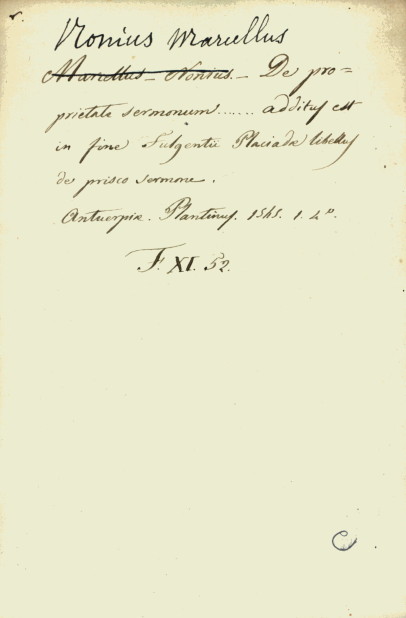 Nonius Marcellus
Marcellus - Nonius. - De pro=
prietate sermonum....... additus est
in fine Fulgentii Placiadæ libellus
de prisco sermone.
Antuerpiæ. Plantinus. 1565. 1. 4°.
F. XI. 52.